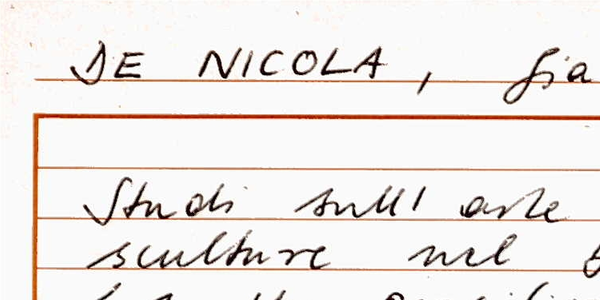 DE NICOLA, Gia
Studi sull'arte
sculture nel